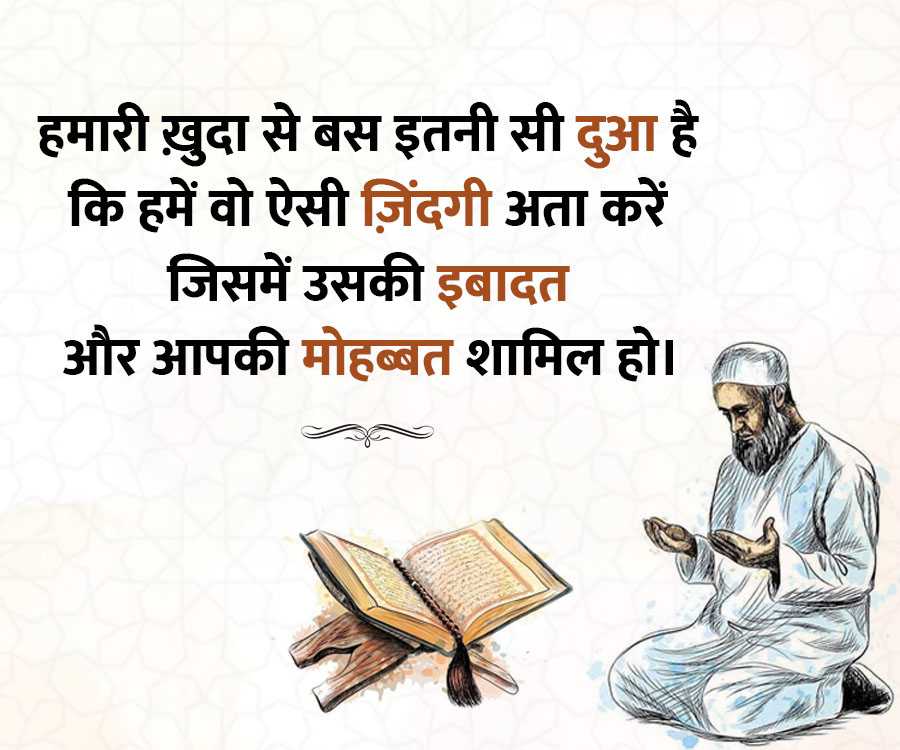 हमारी ख़ुदा से बस इतनी सी दुआ है
कि हमें वो ऐसी ज़िंदगी अता करें
जिसमें उसकी इबादत
और आपकी मोहब्बत शामिल हो।